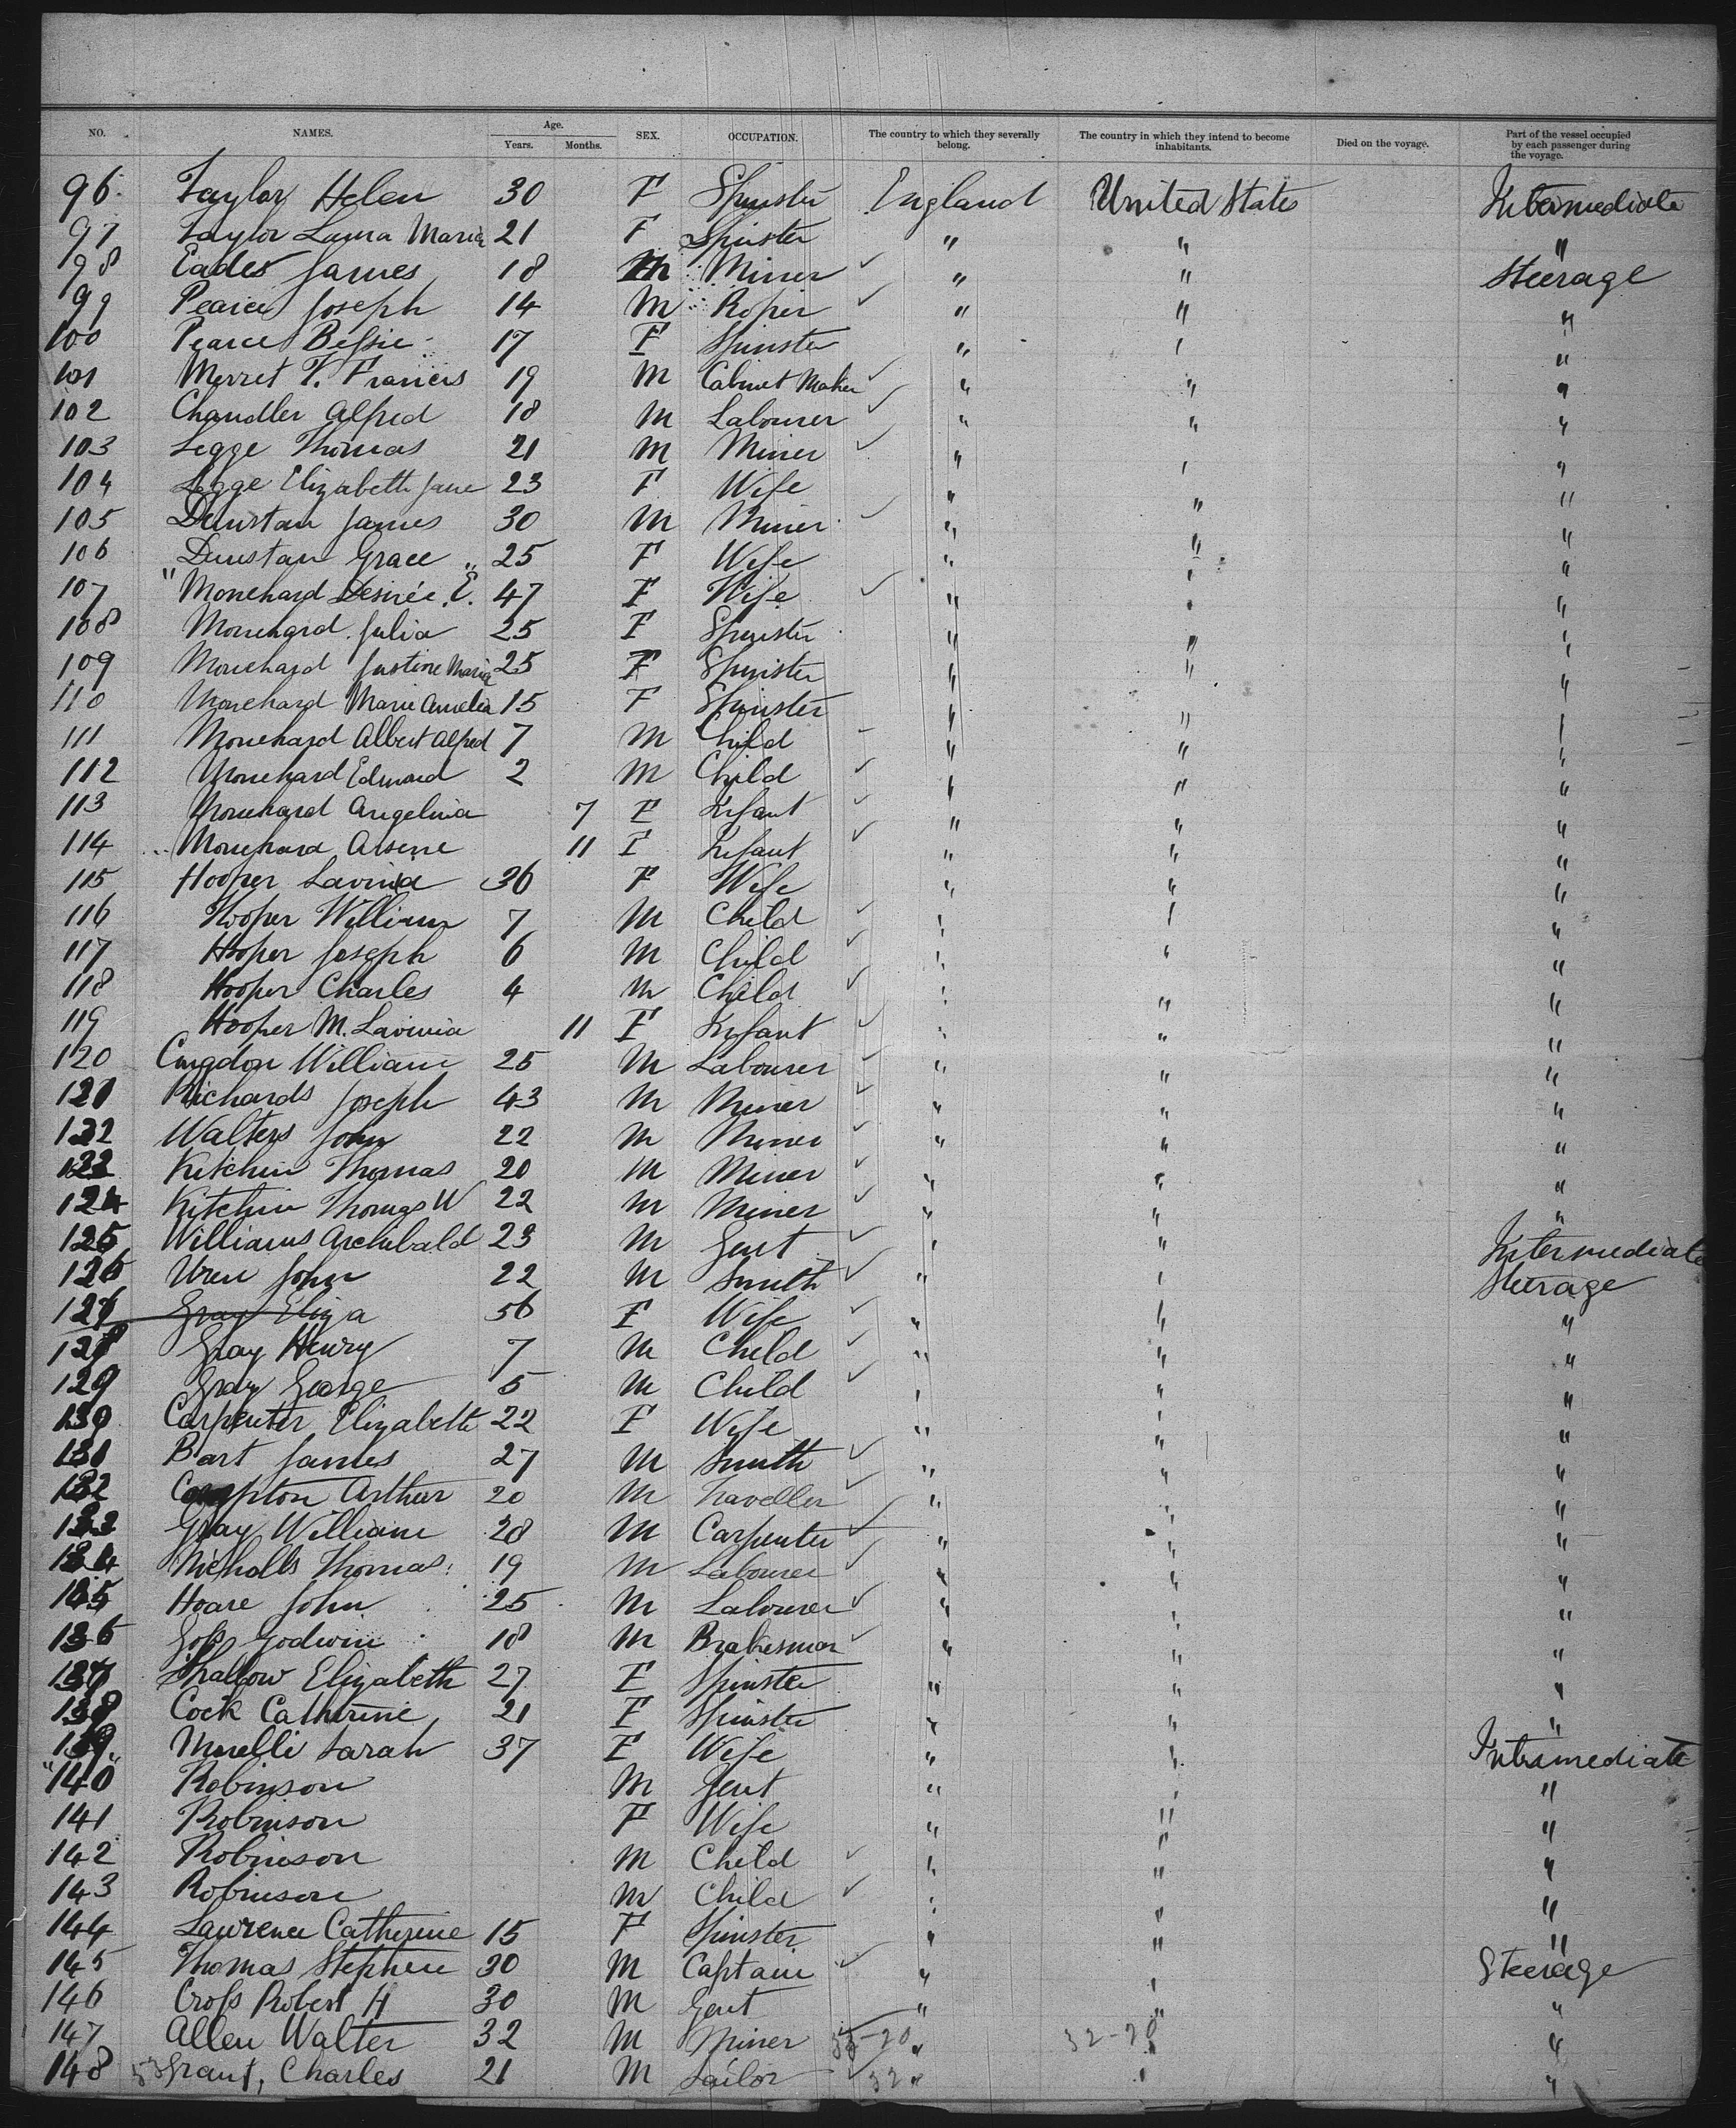 NO. NAMES. Age. Years. Months. SEX. OCCUPATION. The country to which they severally belong. The country in which they intend to become inhabitants. Died on the voyage. Part of the vessel occupied by each passenger during the voyage.
96 Taylor Helen 30 F Spinster England United States Intermediate
97 Taylor Laura Maria 21 F Spinster " " "
98 Eades James 18 M Miner " " Steerage
99 Pearce Joseph 14 M Roper " " "
100 Pearce Bessie 17 F Spinster " " "
101 Merret T. Francis 19 M Cabinet Maker " " "
102 Chandler Alfred 18 M Labourer " " "
103 Legge Thomas 21 M Miner " " "
104 Legge Elizabeth Jane 23 F Wife " " "
105 Dunstan James 30 M Miner " " "
106 Dunstan Grace " 25 F Wife " " "
107 " Monchard Desirée. E. 47 F Wife " " "
108 Monchard Julia 25 F Spinster " " "
109 Monchard Justine Maria 25 F Spinster " " "
110 Monchard Marie Amelia 15 F Spinster " " "
111 Monchard Albert Alfred 7 M Child " " "
112 Monchard Edmond 2 M Child " " "
113 Monchard Angelina 7 F Infant " " "
114 Monchard Arsene 11 F Infant " " "
115 Hooper Lavinia 36 F Wife " " "
116 Hooper William 7 M Child " " "
117 Hooper Joseph 6 M Child " " "
118 Hooper Charles 4 M Child " " "
119 Hooper M. Lavinia 11 F Infant " " "
120 Congdon William 25 M Labourer " " "
121 Richards Joseph 43 M Miner " " "
122 Walters John 22 M Miner " " "
123 Kitchin Thomas 20 M Miner " " "
124 Kitchin Thomas W 22 M Miner " " "
125 Williams Archibald 23 M Gent " " Intermediate
126 Uren John 22 M Smith " " Steerage
127 Gray Eliza 56 F Wife " " "
128 Gray Henry 7 M Child " " "
129 Gray George 5 M Child " " "
130 Carpenter Elizabeth 22 F Wife " " "
131 Bart James 27 M Smith " " "
132 Compton Arthur 20 M Traveller " " "
133 Gray William 28 M Carpenter " " "
134 Nicholls Thomas 19 M Labourer " " "
135 Hoare John 25 M Labourer " " "
136 Goss Godwin 18 M Brakesman " " "
137 Shallow Elizabeth 27 F Spinster " " "
138 Cock Catherine 21 F Spinster " " "
139 Morelli Sarah 37 F Wife " " Intermediate
140 Robinson M Gent " " "
141 Robinson F Wife " " "
142 Robinson M Child " " "
143 Robinson M Child " " "
144 Lawrence Catherine 15 F Spinster " " "
145 Thomas Stephen 30 M Captain " " Steerage
146 Cross Robert H 30 M Gent " " "
147 Allen Walter 32 M Miner " 32-20 " "
148 Grant, Charles 21 M Sailor 32 " " "